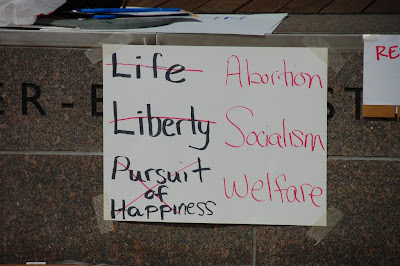 Life Abortion
Liberty Socialism
Pursuit
of
Happiness Welfare
RE
ER - E ST
IN